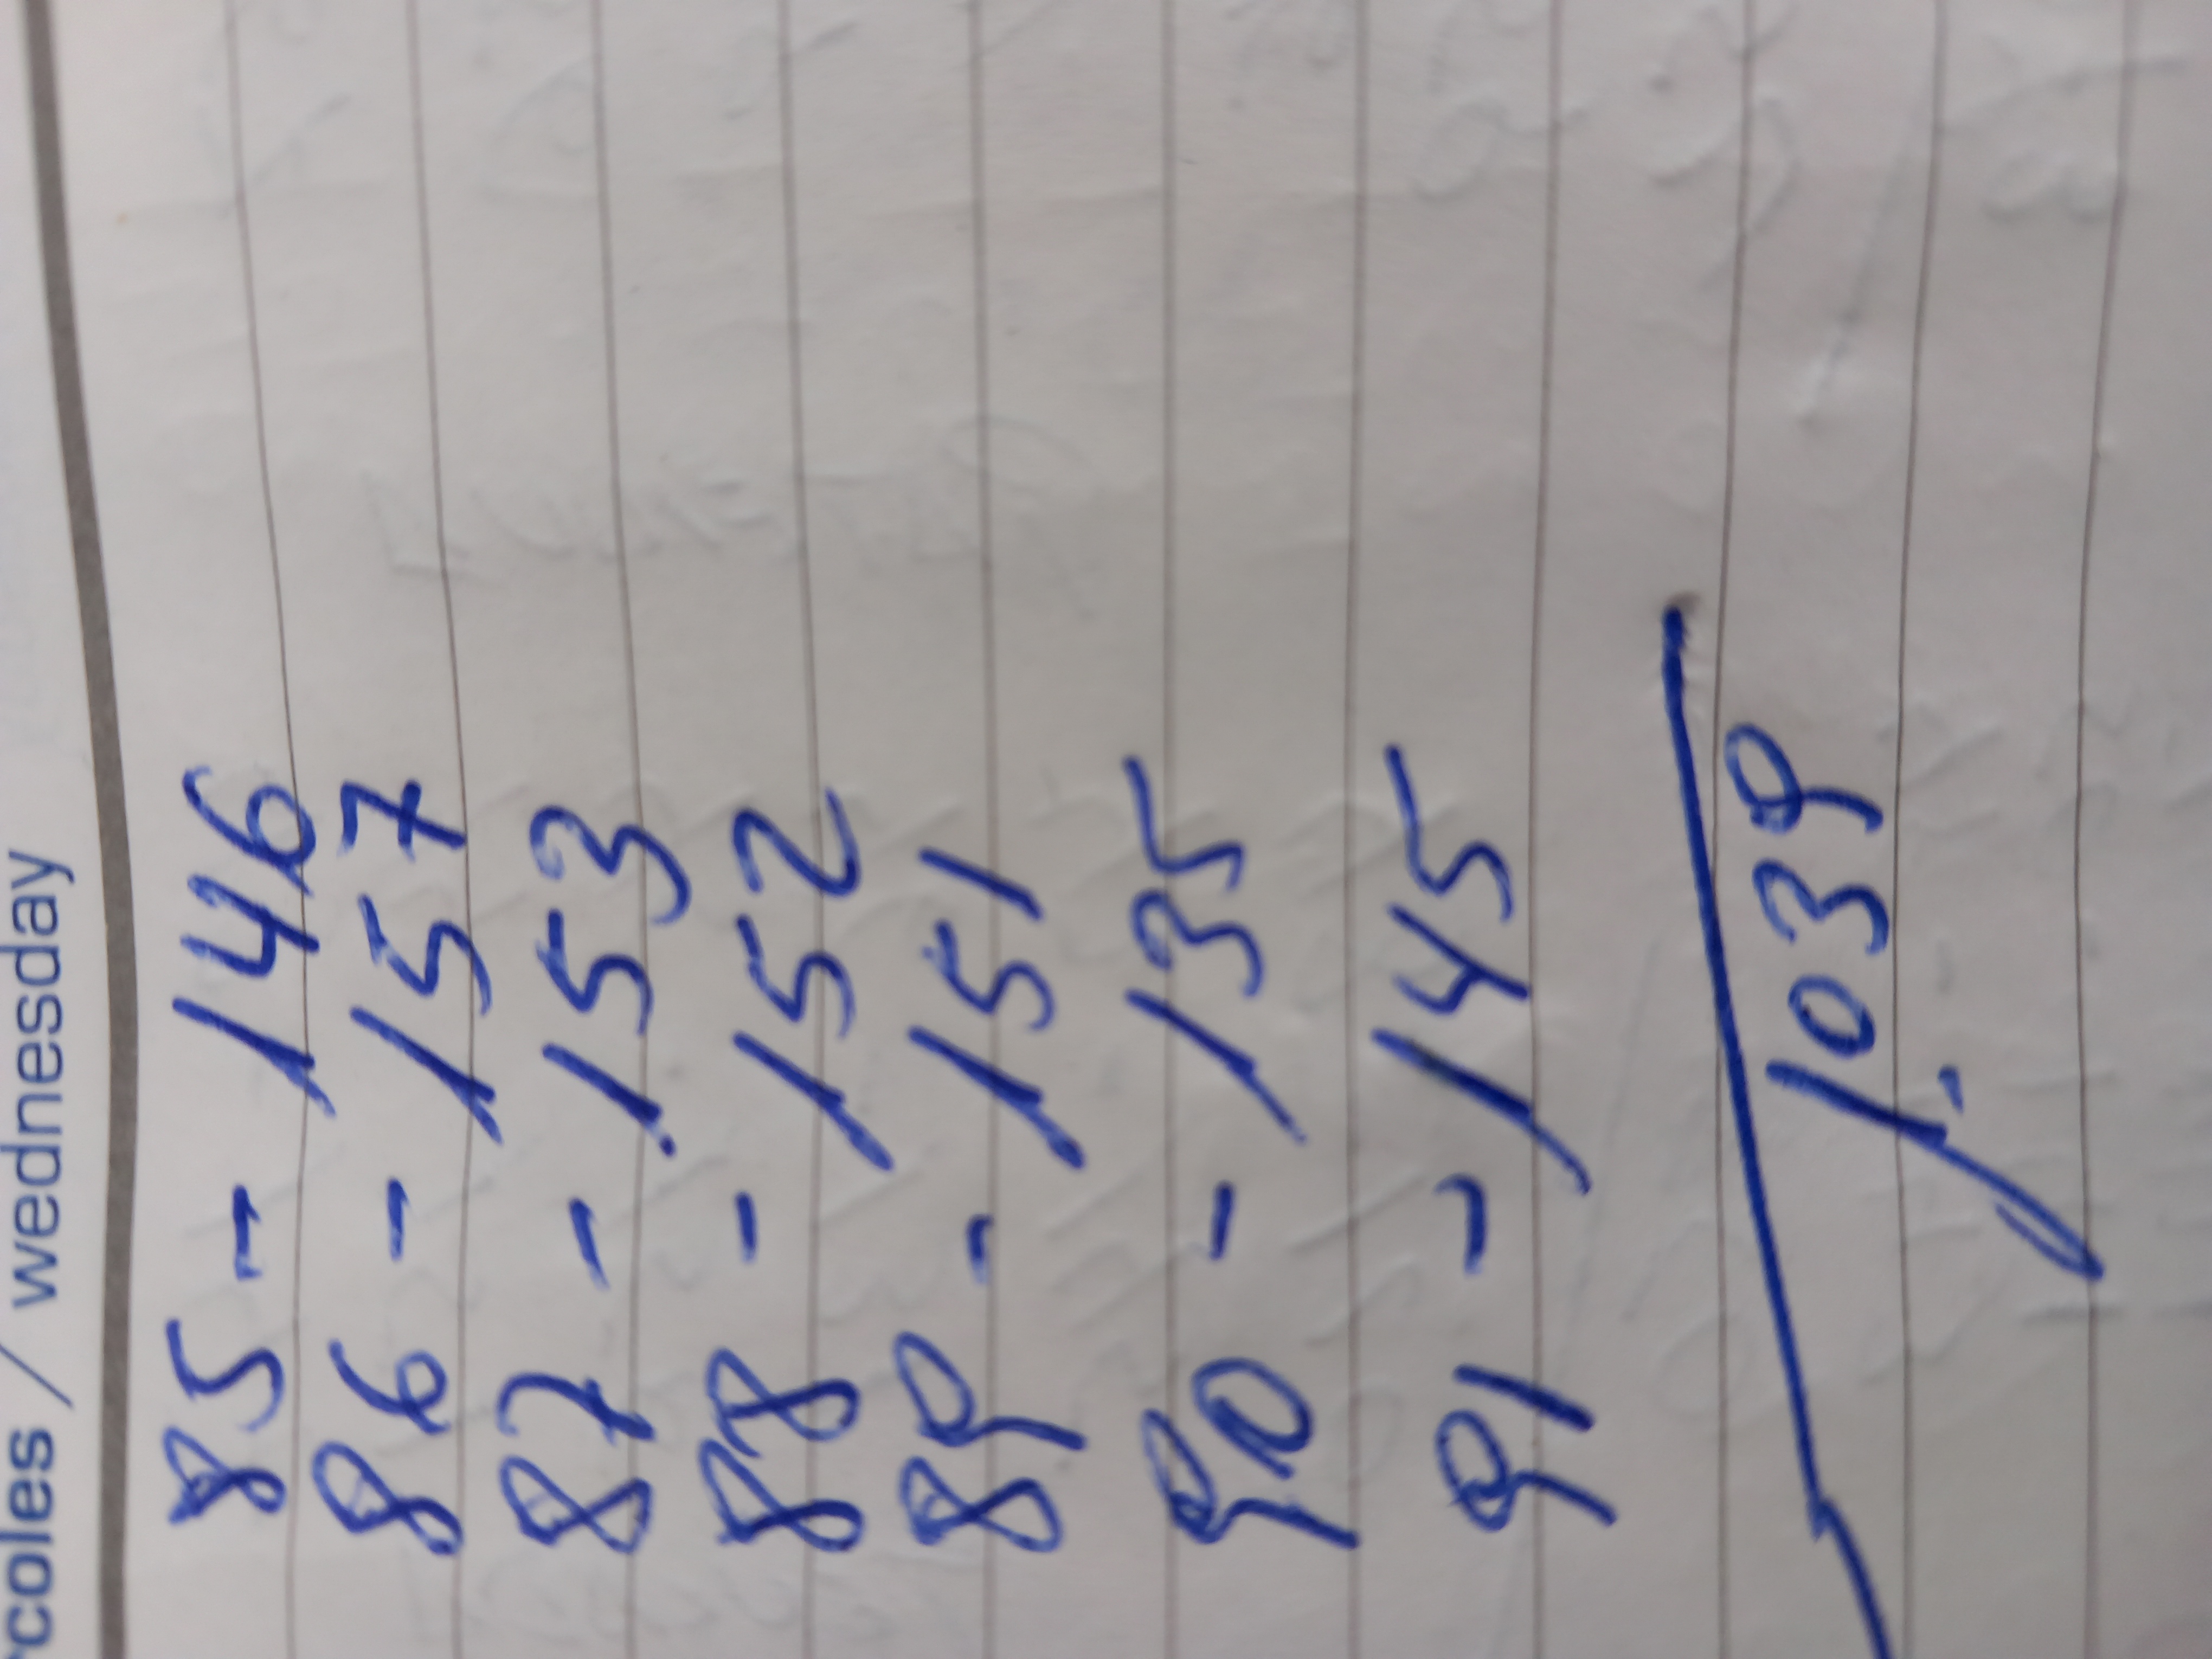 rcoles / wednesday
85 - 146
86 - 157
87 - 153
88 - 152
89 - 151
90 - 135
91 - 145
1.039